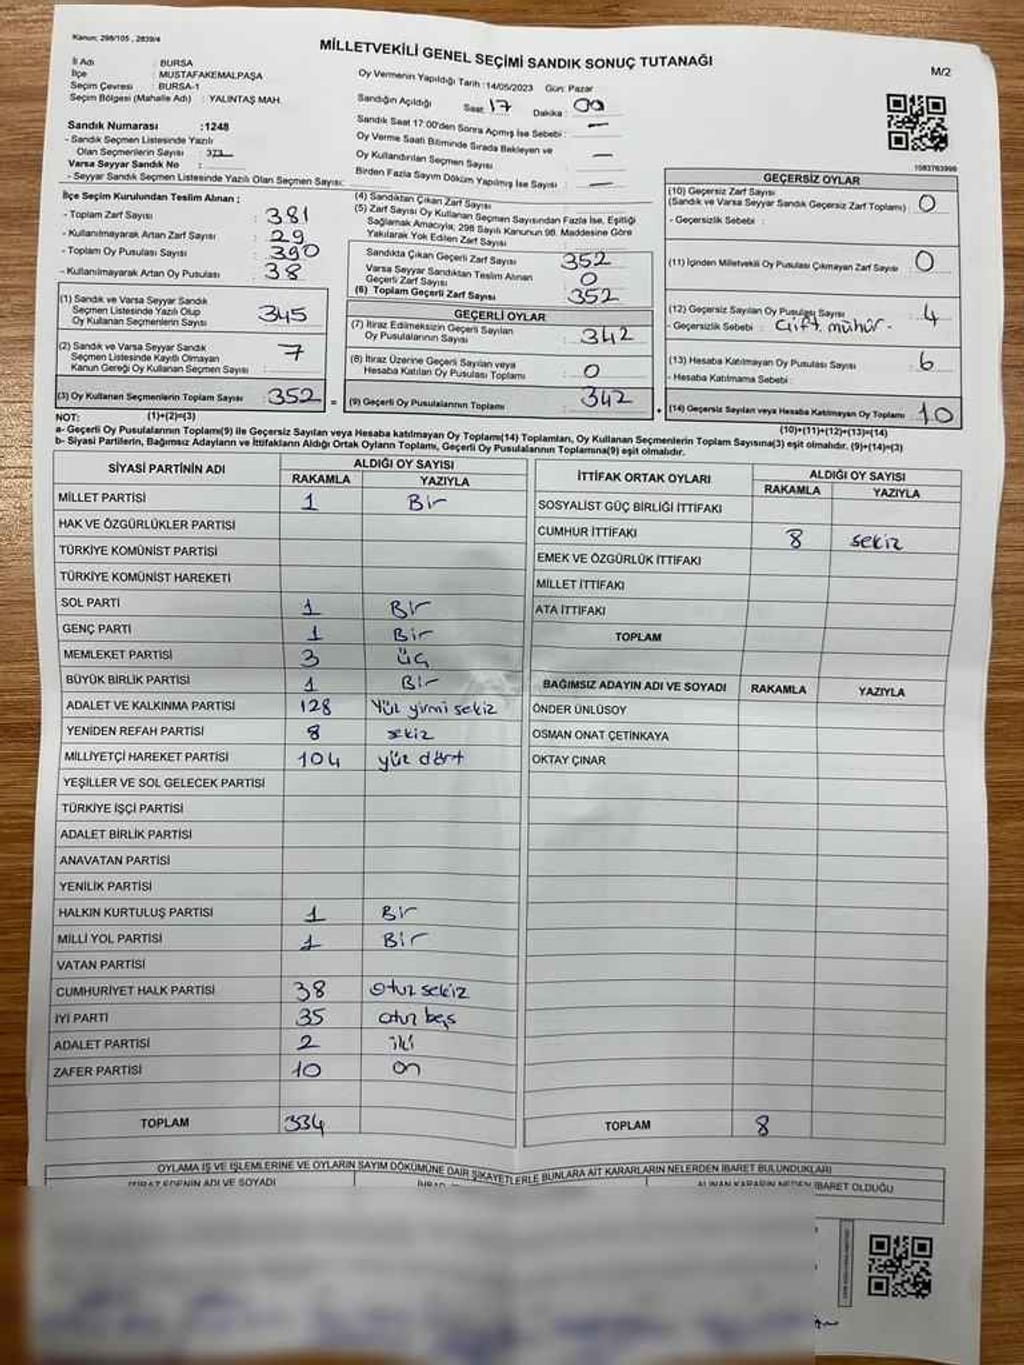 Kanun; 298/105 , 2839/4
MİLLETVEKİLİ GENEL SEÇİMİ SANDIK SONUÇ TUTANAĞI
M/2
İl Adı : BURSA
İlçe : MUSTAFAKEMALPAŞA
Seçim Çevresi : BURSA-1
Seçim Bölgesi (Mahalle Adı) : YALINTAŞ MAH.
Sandık Numarası :1248
- Sandık Seçmen Listesinde Yazılı
Olan Seçmenlerin Sayısı : 373
Varsa Seyyar Sandık No :
- Seyyar Sandık Seçmen Listesinde Yazılı Olan Seçmen Sayısı:
Oy Vermenin Yapıldığı Tarih :14/05/2023 Gün: Pazar
Sandığın Açıldığı Saat 17 Dakika : 00
Sandık Saat 17:00'den Sonra Açımış İse Sebebi : —
Oy Verme Saati Bitiminde Sırada Bekleyen ve
Oy Kullandırılan Seçmen Sayısı : —
Birden Fazla Sayım Döküm Yapılmış İse Sayısı : —
1083763999
İlçe Seçim Kurulundan Teslim Alınan ;
- Toplam Zarf Sayısı : 381
- Kullanılmayarak Artan Zarf Sayısı : 29
- Toplam Oy Pusulası Sayısı : 390
- Kullanılmayarak Artan Oy Pusulası : 38
(1) Sandık ve Varsa Seyyar Sandık
Seçmen Listesinde Yazılı Olup
Oy Kullanan Seçmenlerin Sayısı : 345
(2) Sandık ve Varsa Seyyar Sandık
Seçmen Listesinde Kayıtlı Olmayan
Kanun Gereği Oy Kullanan Seçmen Sayısı : 7
(3) Oy Kullanan Seçmenlerin Toplam Sayısı : 352 =
(4) Sandıktan Çıkan Zarf Sayısı
(5) Zarf Sayısı Oy Kullanan Seçmen Sayısından Fazla İse, Eşitliği
Sağlamak Amacıyla; 298 Sayılı Kanunun 98. Maddesine Göre
Yakılarak Yok Edilen Zarf Sayısı :
Sandıkta Çıkan Geçerli Zarf Sayısı : 352
Varsa Seyyar Sandıktan Teslim Alınan
Geçerli Zarf Sayısı : 0
(6) Toplam Geçerli Zarf Sayısı : 352
GEÇERLİ OYLAR
(7) İtiraz Edilmeksizin Geçerli Sayılan
Oy Pusulalarının Sayısı : 342
(8) İtiraz Üzerine Geçerli Sayılan veya
Hesaba Katılan Oy Pusulası Toplamı : 0
(9) Geçerli Oy Pusulalarının Toplamı : 342 +
GEÇERSİZ OYLAR
(10) Geçersiz Zarf Sayısı
(Sandık ve Varsa Seyyar Sandık Geçersiz Zarf Toplamı) : 0
- Geçersizlik Sebebi :
(11) İçinden Milletvekili Oy Pusulası Çıkmayan Zarf Sayısı : 0
(12) Geçersiz Sayılan Oy Pusulası Sayısı : 4
- Geçersizlik Sebebi : Çift mühür.
(13) Hesaba Katılmayan Oy Pusulası Sayısı : 6
- Hesaba Katılmama Sebebi :
(14) Geçersiz Sayılan veya Hesaba Katılmayan Oy Toplamı : 10
NOT: (1)+(2)=(3) (10)+(11)+(12)+(13)=(14)
a- Geçerli Oy Pusulalarının Toplamı(9) ile Geçersiz Sayılan veya Hesaba katılmayan Oy Toplamı(14) Toplamları, Oy Kullanan Seçmenlerin Toplam Sayısına(3) eşit olmalıdır. (9)+(14)=(3)
b- Siyasi Partilerin, Bağımsız Adayların ve İttifakların Aldığı Ortak Oyların Toplamı, Geçerli Oy Pusulalarının Toplamına(9) eşit olmalıdır.
SİYASİ PARTİNİN ADI ALDIĞI OY SAYISI
RAKAMLA YAZIYLA
MİLLET PARTİSİ 1 Bir
HAK VE ÖZGÜRLÜKLER PARTİSİ
TÜRKİYE KOMÜNİST PARTİSİ
TÜRKİYE KOMÜNİST HAREKETİ
SOL PARTİ 1 Bir
GENÇ PARTİ 1 Bir
MEMLEKET PARTİSİ 3 üç
BÜYÜK BİRLİK PARTİSİ 1 Bir
ADALET VE KALKINMA PARTİSİ 128 Yüz yirmi sekiz
YENİDEN REFAH PARTİSİ 8 sekiz
MİLLİYETÇİ HAREKET PARTİSİ 104 yüz dört
YEŞİLLER VE SOL GELECEK PARTİSİ
TÜRKİYE İŞÇİ PARTİSİ
ADALET BİRLİK PARTİSİ
ANAVATAN PARTİSİ
YENİLİK PARTİSİ
HALKIN KURTULUŞ PARTİSİ 1 Bir
MİLLİ YOL PARTİSİ 1 Bir
VATAN PARTİSİ
CUMHURİYET HALK PARTİSİ 38 otuz sekiz
İYİ PARTİ 35 otuz beş
ADALET PARTİSİ 2 iki
ZAFER PARTİSİ 10 on
TOPLAM 334
İTTİFAK ORTAK OYLARI ALDIĞI OY SAYISI
RAKAMLA YAZIYLA
SOSYALİST GÜÇ BİRLİĞİ İTTİFAKI
CUMHUR İTTİFAKI 8 sekiz
EMEK VE ÖZGÜRLÜK İTTİFAKI
MİLLET İTTİFAKI
ATA İTTİFAKI
TOPLAM
BAĞIMSIZ ADAYIN ADI VE SOYADI RAKAMLA YAZIYLA
ÖNDER ÜNLÜSOY
OSMAN ONAT ÇETİNKAYA
OKTAY ÇINAR
TOPLAM 8
OYLAMA İŞ VE İŞLEMLERİNE VE OYLARIN SAYIM DÖKÜMÜNE DAİR ŞİKAYETLERLE BUNLARA AİT KARARLARIN NELERDEN İBARET BULUNDUKLARI
İTİRAZ EDENİN ADI VE SOYADI ALINAN KARARIN NEDEN İBARET OLDUĞU